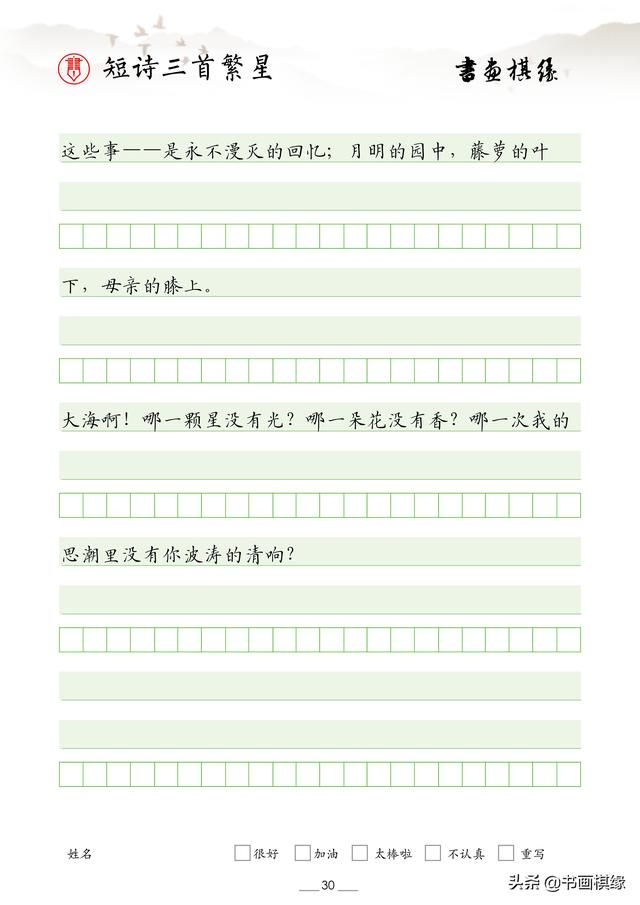 短诗三首繁星
書画棋缘
这些事——是永不漫灭的回忆；月明的园中，藤萝的叶
下，母亲的膝上。
大海啊！哪一颗星没有光？哪一朵花没有香？哪一次我的
思潮里没有你波涛的清响？
姓名 很好 加油 太棒啦 不认真 重写
30
头条 @书画棋缘